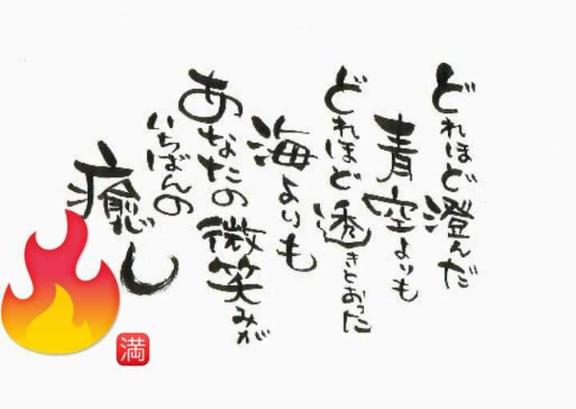 どれほど澄んだ
青空よりも
どれほど透きとおった
海よりも
あなたの微笑みが
いちばんの
癒し
満